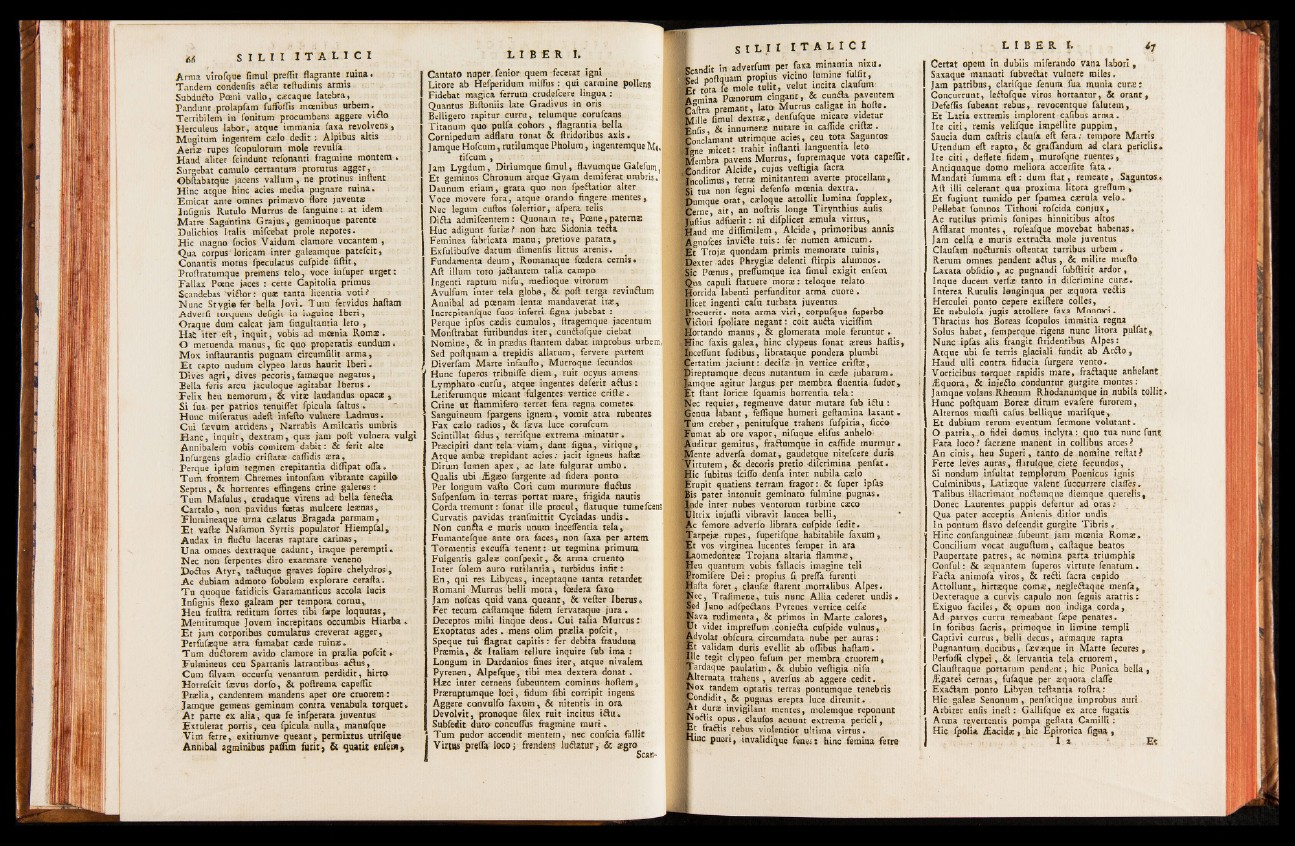 66 SILII ITALICI
Arma virosque simul pressit flagrante ruina.
Tandem condensis actæ testudinis armis
Subducto Pœni vallo, cæcaque latebra,
Pandunt prolapsam suffossis mœnibus urbem.
Terribilem in sonitum procumbens aggere victo
Herculeus labor, atque immania saxa revolvens,
Mugitum ingentem cælo dedit: Alpibus altis
Aeriæ rupes scopulorum mole revulsa
Haud aliter scindunt resonanti fragmine montem.
Surgebat cumulo certantum prorutus agger,
Obstabatque jacens vallum, ne protinus instent
Hinc atque hinc acies media pugnare ruina.
Emicat ante omnes primævo flore juventæ
Insignis Rutulo Murrus de sanguine: at idem
Matre Saguntina Grajus, geminoque parente
Dulichios Italis miscebat prole nepotes.
Hic magno socios Vaidum clamore vocantem,
Qua corpus loricam inter galeamque patescit,
Conantis motus speculatus cuspide sistit,
Prostratumque premens telo, voce insuper urget:
Fallax Pœne jaces: certe Capitolia primus
Scandebas victor: quæ tanta licentia voti?
Nunc Stygio fer bella Jovi. Tum fervidus hastam
Adversi torquens defigit in inguine Iberi,
Oraque dum calcat jam singultantia leto,
Hac iter est, inquit, vobis ad mœnia Romæ.
O metuenda manus, sic quo properatis eundum.
Mox instaurantis pugnam circumsilit arma,
Et rapto nudum clypeo latus haurit Iberi.
Dives agri, dives pecoris, famæque negatus,
Bella feris arcu jaculoque agitabat Iberus.
Felix heu nemorum, & vitæ laudandus opacæ,
Si sua per patrios tenuisset spicula saltus.
Hunc miseratus adest infesto vulnere Ladmus.
Cui sævum arridens, Narrabis Amilcaris umbris
Hanc, inquit, dextram, quæ jam post vulnera vulgi
Annibalem vobis comitem dabit: & ferit alte
Insurgens gladio cristatæ cassidis æra,
Perque ipsum tegmen crepitantia dissipat ossa.
Tum frontem Chremes intonsam vibrante capillo
Septus, & horrentes effingens crine galeros:
Tum Masulus, crudaque virens ad bella senecta
Cartalo, non pavidus fœtas mulcere leænas,
Flumineaque urna cælatus Bragada parmam,
Et vastæ Nasamon Syrtis populator Hiempsal,
Audax in fluctu laceras raptare carinas,
Una omnes dextraque cadunt, iraque perempti.
Nec non serpentes diro exarmare veneno
Doctus Atyr, tactuque graves sopire chelydros,
Ac dubiam admoto sobolem explorare cerasta.
Tu quoque fatidicis Garamanticus accola lucis
Insignis flexo galeam per tempora cornu,
Heu frustra reditum sortes tibi sæpe loquutas,
Mentitumque Jovem increpitans occumbis Hiarba.
Et jam corporibus cumulatus creverat agger,
Perfusæque atra fumabat cæde ruinæ.
Tum ductorem avido clamore in prælia poscit.
Fulmineus ceu Spartanis latrantibus actus,
Cum silvam occursu venantum perdidit, hirto
Horrescit sævus dorso, & postrema capessit
Prælia, candentem mandens aper ore cruorem:
Jamque gemens geminum contra venabula torquet.
At parte ex alia, qua se insperata juventus
Extulerat portis, ceu spicula nulla, manusque
Vim ferre, exitiumve queant, permixtus utrisque
Annibal agminibus passim furit, & quatit ensem,
LIBER I.
Cantato nuper senior quem fecerat igni
Litore ab Hesperidum missus: qui carmine pollens
Fidebat magica ferrum crudescere lingua:
Quantus Bistoniis late Gradivus in oris
Belligero rapitur curru, telumque coruscans
Titanum quo pulsa cohors, flagrantia bella
Cornipedum adflatu tonat & stridoribus axis.
Jamque Hoscum, rutilumque Pholum, ingentemque Me-
tiscum,
Jam Lygdum, Diriumque simul, flavumque Galesum,
Et geminos Chronum atque Gyam demiserat umbris.
Daunum etiam, grata quo non spectatior alter
Voce movere fora, atque orando fingere mentes,
Nec legum custos solertior, aspera telis
Dicta admiscentem: Quonam te, Pœne, paternæ
Huc adigunt furiæ? non hæc Sidonia tecta
Feminea fabricata manu, pretiove parata,
Exsulibusve datum dimensis littus arenis.
Fundamenta deum, Romanaque fœdera cernis.
Ast illum toto jactantem talia campo
Ingenti raptum nisu, medioque virorum
Avulsum inter tela globo, & post terga revinctum
Annibal ad pœnam lentæ mandaverat iræ,
Increpitansque suos inferri signa jubebat:
Perque ipsos cædis cumulos, stragemque jacentum
Monstrabat furibundus iter, cunctosque ciebat
Nomine, & in prædas stantem dabat improbus urbem.
Sed postquam a trepidis allatum, fervere partem
Diversam Marte infausto, Murroque secundos
Hunc superos tribuisse diem, ruit ocyus amens
Lymphato cursu, atque ingentes deserit actus:
Letiferumque micant fulgentes vertice cristæ.
Crine ut flammifero terret fera regna cometes
Sanguineum spargens ignem, vomit atra rubentes
Fax cælo radios, & sæva luce coruscum
Scintillat sidus, terrisque extrema minatur.
Præcipiti dant tela viam, dant signa, virique,
Atque ambæ trepidant acies: jacit igneus hastæ
Dirum lumen apex, ac late fulgurat umbo.
Qualis ubi Ægæo surgente ad sidera ponto
Per longum vasto Cori cum murmure fluctus
Suspensum in terras portat mare, frigida nautis
Corda tremunt: sonat ille procul, flatuque tumescens
Curvatis pavidas tranfmittit Cycladas undis.
Non cuncta e muris unum incessentia tela,
Fumantesque ante ora faces, non saxa per artem
Tormentis excussa tenent: ut tegmina primum
Fulgentis galeæ conspexit, & arma cruento
Inter solem auro rutilantia, turbidus infit:
En, qui res Libycas, inceptaque tanta retardet
Romani Murrus belli mora, fœdera faxo
Jam noscas quid vana queant, & vester Iberus.
Fer tecum castamque fidem servataque jura.
Deceptos mihi linque deos. Cui talia Murrus:
Exoptatus ades. mens olim prælia poscit,
Speque tui flagrat capitis: fer debita fraudum
Præmia, & Italiam tellure inquire sub ima:
Longum in Dardanios fines iter, atque nivalem
Pyrenen, Alpesque, tibi mea dextera donat.
Hæc inter cernens subeuntem cominus hostem,
Præruptumque loci, fidum sibi corripit ingens
Aggere convulso saxum, & nitentis in ora
Devolvit, pronoque silex ruit incitus ictu.
Subsedit duro concussus fragmine muri.
Tum pudor accendit mentem, nec conscia fallit
Virtus pressa loco; frendens luctatur, & ægro
Scan-
SILII ITALICI
Scandit in adversum per saxa minantia nixu.
Sed postquam propius vicino lumine fulsit,
Et tota se mole tulit, velut incita clausum
Agmina Pœnorum cingant, & cuncta paventem
Castra premant, lato Murrus caligat in hoste.
Mille simul dextræ, densusque micare videtur
Ensis, & innumeræ nutare in casside cristæ.
Conclamant utrimque acies, ceu tota Saguntos
Igne micet: trahit instanti languentia leto
Membra pavens Murrus, supremaque vota capessit.
Conditor Alcide, cujus vestigia sacra
Incolimus, terræ minitantem averte procellam,
Si tua non segni defenso mœnia dextra.
Dumque orat, cæloque attollit lumina supplex,
Cerne, ait, an nostris longe Tirynthius ausis
Justius adfuerit: ni displicet æmula virtus,
Haud me dissimilem, Alcide, primoribus annis
Agnosces invicte tuis: fer numen amicum.
Et Trojæ quondam primis memorate ruinis,
Dexter ades Phrygiæ delenti stirpis alumnos.
Sic Pœnus, pressumque ira simul exigit ensem
Qua capuli statuere moræ: teloque relato
Horrida labenti perfunditur arma cuore.
Ilicet ingenti casu turbata juventus
Procurrit. nota arma viri, corpusque superbo
Victori spoliare negant: coit aucta vicissim
Hortando manus, & glomerata mole feruntur.
Hinc saxis galea, hinc clypeus sonat æreus hastis,
Incessunt sudibus, librataque pondera plumbi
Certatim jaciunt: decisæ in vertice cristæ,
Direptumque decus nutantum in cæde jubarum.
Jamque agitur largus per membra fluentia sudor,
Et stant loricæ squamis horrentia tela:
Nec requies, tegmenve datur mutare sub ictu:
Genua labant, fessique humeri gestamina laxant.
Tum creber, penitusque trahens suspiria, sicco
Fumat ab ore vapor, nisuque elisus anhelo
Auditur gemitus, fractumque in casside murmur.
Mente adversa domat, gaudetque nitescere duris
Virtutem, & decoris pretio discrimina pensat.
Hic subitus scisso densa inter nubila cælo
Erupit quatiens terram fragor: & super ipsas
Bis pater intonuit geminato fulmine pugnas.
Inde inter nubes ventorum turbine cæco
Ultrix injusti vibravit lancea belli,
Ac femore adverso librata cuspide sedit.
Tarpejæ rupes, superisque habitabile saxum,
Et vos virginea lucentes semper in ara
Laomedonteæ Trojana altaria flammæ,
Heu quantum vobis fallacis imagine teli
Promisere Dei: propius si pressa furenti
Hasta foret, clausæ starent mortalibus Alpes.
Nec, Trasimene, tuis nunc Allia cederet undis.
Sed Juno adspectans Pyrenes vertice celsæ
Nava rudimenta, & primos in Marte calores,
Ut videt impressum conjecta cuspide vulnus,
Advolat obscura circumdata nube per auras:
Et validam duris evellit ab ossibus hastam.
Ille tegit clypeo fusum per membra cruorem,
Tardaque paulatim, & dubio vestigia nisu
Alternata trahens, aversus ab aggere cedit.
Nox tandem optatis terras pontumque tenebris
Condidit, & pugnas erepta luce diremit.
At duræ invigilant mentes, molemque reponunt
Noctis opus. clausos acuunt extrema pericli,
Et fractis rebus violentior ultima virtus.
Hinc pueri, invalidique senes: hinc femina ferre
LIBER I. 67
Certat opem in dubiis miserando vana labori,
Saxaque mananti subvectat vulnere miles.
Jam patribus, clarisque senum sua munia curæ:
Concurrunt, lectosque viros hortantur, & orant,
Defessis subeant rebus, revocentque salutem,
Et Latia extremis implorent casibus arma.
Ite citi, remis velisque impellite puppim,
Saucia dum castris clausa est fera: tempore Martis
Utendum est rapto, & grassandum ad clara periclis.
Ite citi, deflete fidem, murosque ruentes,
Antiquaque domo meliora accersite fata.
Mandati summa est: dum stat, remeate, Saguntos.
Ast illi celerant qua proxima litora gressum,
Et fugiunt tumido per spumea cærula velo.
Pellebat somnos Tithoni roscida conjux,
Ac rutilus primis sonipes hinnitibus altos
Afflarat montes, roseasque movebat habenas.
Jam celsa e muris extructa mole juventus
Clausam nocturnis ostentat turribus urbem.
Rerum omnes pendent actus, & milite mœsto
Laxata obsidio, ac pugnandi substitit ardor,
Inque ducem versæ tanto in discrimine curæ.
Interea Rutulis longinqua per æquora vectis
Herculei ponto cepere existere colles,
Et nebulosa jugis attollere saxa Monœci.
Thracius hos Boreas scopulos immitia regna
Solus habet, semperque rigens nunc litora pulsat,
Nunc ipsas alis frangit stridentibus Alpes:
Atque ubi se terris glaciali fundit ab Arcto,
Haud ulli contra fiducia surgere vento.
Vorticibus torquet rapidis mare, fractaque anhelant
Æquora, & injecto conduntur gurgite montes:
Jamque volans Rhenum Rhodanumque in nubila tollit.
Hunc postquam Boreæ dirum evasere furorem,
Alternos mœsti casus bellique marisque,
Et dubium rerum eventum sermone volutant.
O patria, o fidei domus inclyta: quo tua nunc sunt
Fata loco? sacræne manent in collibus arces?
An cinis, heu Superi, tanto de nomine restat?
Ferte leves auras, flatusque ciete secundos,
Si nondum insultat templorum Poenicus ignis
Culminibus, Latiæque valent succurrere classes.
Talibus illacrimant noctemque diemque querelis,
Donec Laurentes puppis defertur ad oras:
Qua pater acceptis Anienis ditior undis
In pontum flavo descendit gurgite Tibris.
Hinc consanguineæ subeunt jam mœnia Romæ.
Concilium vocat augustum, castaque beatos
Paupertate patres, ac nomina parta triumphis
Consul: & æquantem superos virtute senatum.
Facta animosa viros, & recti sacra cupido
Attollunt, hirtæque comæ, neglectaque mensa,
Dexteraque a curvis capulo non segnis aratris:
Exiguo faciles, & opum non indiga corda,
Ad parvos curru remeabant sæpe penates.
In foribus sacris, primoque in limine templi
Captivi currus, belli decus, armaque rapta
Pugnantum ducibus, sævæque in Marte secures,
Perfossi clypei, & servantia tela cruorem,
Claustraque portarum pendent; hic Punica bella,
Ægates cernas, fusaque per æquora classe
Exactam ponto Libyen testantia rostra:
Hic galeæ Senonum, pensatique improbus auri
Arbiter ensis inest: Gallisque ex arce fugatis
Arma revertentis pompa gestata Camilli:
Hic spolia Æacidæ, hic Epirotica signa,
I 2 Et